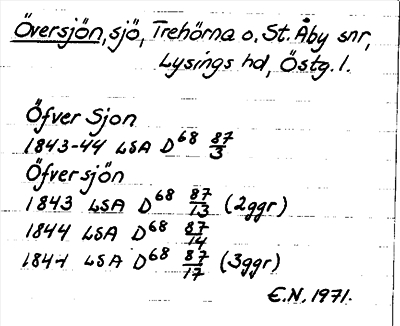 Översjön, sjö, Trehörna o. St. Åby snr,
Lysings hd, Östg. l.
Öfver Sjon
1843-44 LSA D68 87/3
Öfversjön
1843 LSA D68 87/13 (2ggr)
1844 LSA D68 87/14
1844 LSA D68 87/17 (3ggr)
E.N. 1971.